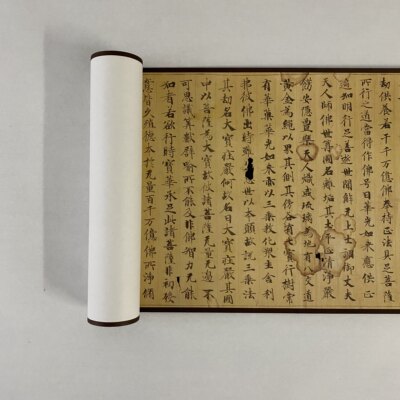 劫供養若干千万億佛奉持正法具足菩薩
所行之道當得作佛号曰華光如來應供正
遍知明行足善逝世間解无上士調御丈夫
天人師佛世尊國名離垢其土平正清淨嚴
飾安隱豐樂天人熾盛琉璃為地有八交道
黃金為繩以界其側其傍各有七寶行樹常
有華菓華光如來亦以三乘教化眾生舍利
弗彼佛出時世以本願故說三乘法
其劫名大寶莊嚴何故名曰大寶莊嚴其國
中以菩薩為大寶故彼諸菩薩无量无邊不
可思議算數譬喻所不能及非佛智力无能
知者若欲行時寶華承足此諸菩薩非初發
意皆久殖德本於无量百千万億佛所淨脩